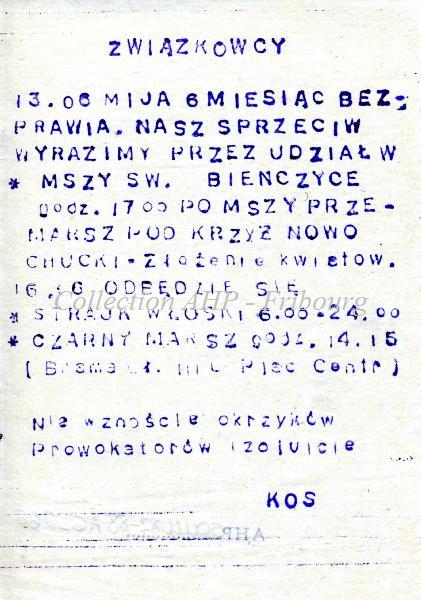 ZWIĄZKOWCY
13.06 MIJA 6 MIESIĄC BEZ-
PRAWIA. NASZ SPRZECIW
WYRAZIMY PRZEZ UDZIAŁ W
* MSZY SW. BIENCZYCE
godz. 17 00 PO MSZY PRZE-
MARSZ POD KRZYŻ NOWO
CHUCKI - Złożenie kwiatow.
16.06 ODBĘDZIE SIĘ
Collection AHP - Fribourg
* STRAJK WŁOSKI 6.00-24.00
* CZARNY MARSZ godz. 14.15
( Brama Gł. Plac Centr )
Nie wznoście okrzyków
Prowokatorów izolujcie
KOS
AHP